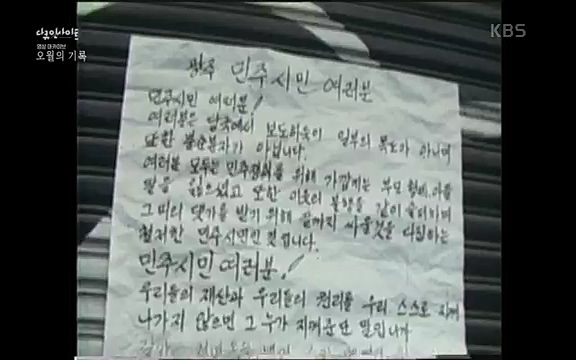 다큐인사이트
영상 아카이브
오월의 기록
KBS
광주 민주시민 여러분
민주시민 여러분!
여러분은 당국에서 보도하듯이 일부의 폭도가 아니며
또한 불순분자가 아닙니다.
여러분 모두는 민주정의를 위해 가깝게는 부모 형제, 아들
딸을 잃으셨고 또한 이웃의 불행을 같이 슬퍼하며
그 피의 댓가를 받기 위해 끝까지 싸울것을 다짐하는
철저한 민주시민인 것입니다.
민주시민 여러분!
우리들의 재산과 우리들의 권리를 우리 스스로 지켜
나가지 않으면 그 누가 지켜준단 말입니까